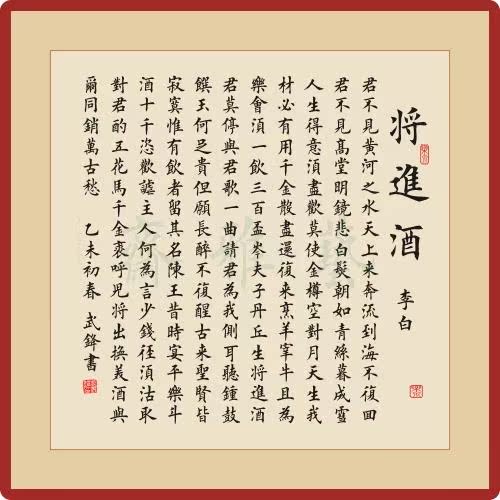 将進酒
李白
君不見黄河之水天上来奔流到海不復回
君不見髙堂明鏡悲白髮朝如青絲暮成雪
人生得意湏盡歡莫使金樽空對月天生我
材必有用千金散盡還復来烹羊宰牛且為
樂會湏一飲三百盃岑夫子丹丘生将進酒
君莫停與君歌一曲請君為我側耳聽鍾鼓
饌玉何足貴但願長醉不復醒古来聖賢皆
寂寞惟有飲者留其名陳王昔時宴平樂斗
酒十千恣歡謔主人何為言少錢徑湏沽取
對君酌五花馬千金裘呼児将出換美酒與
爾同銷萬古愁 乙未初春 武鋒書